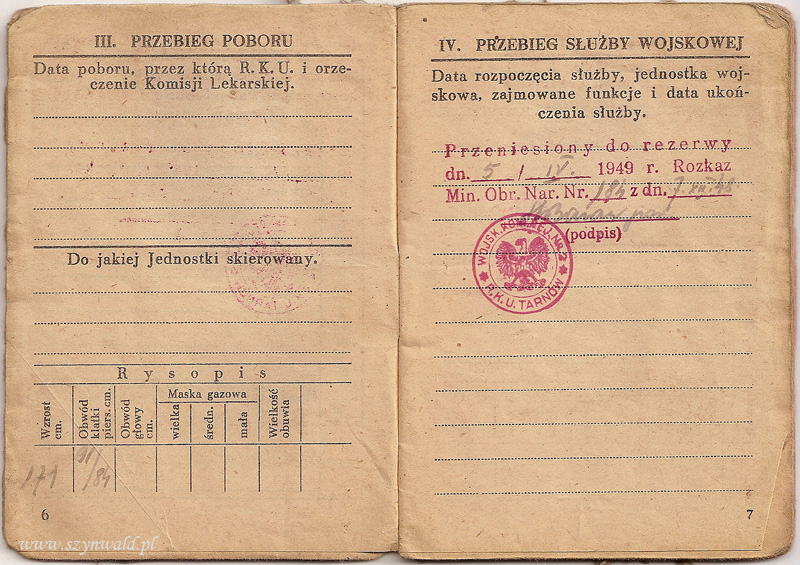 III. PRZEBIEG POBORU
Data poboru, przez którą R. K. U. i orze-
czenie Komisji Lekarskiej.
Do jakiej Jednostki skierowany.
Rysopis
Wzrost cm.
Obwód klatki piers. cm.
Obwód głowy cm.
Maska gazowa
wielka
średn.
mała
Wielkość obuwia
171
91/84
6
www.szynwald.pl
IV. PRZEBIEG SŁUŻBY WOJSKOWEJ
Data rozpoczęcia służby, jednostka woj-
skowa, zajmowane funkcje i data ukoń-
czenia służby.
Przeniesiony do rezerwy
dn. 5 / IV. 1949 r. Rozkaz
Min. Obr. Nar. Nr. 184 z dn. 7.XII.48
(podpis)
WOJSK. KOM. REJ. Nr 2
R.K.U. TARNÓW
7